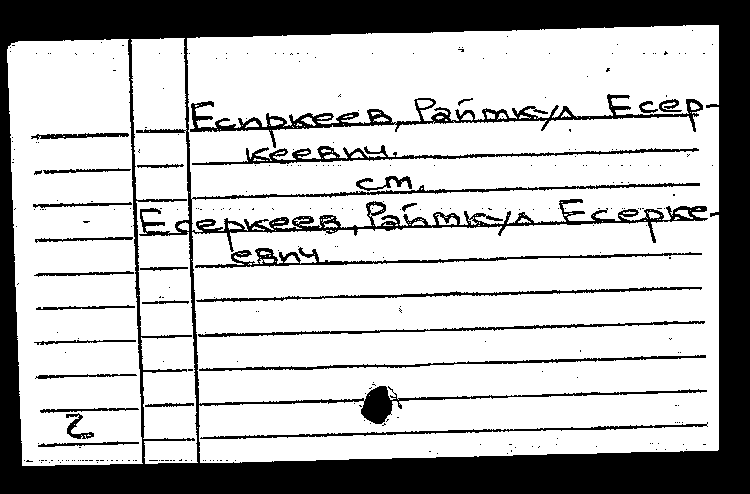 Есиркеев, Раймкул Есер-
кеевич.
см.
Есеркеев, Раймкул Есерке-
евич.
2